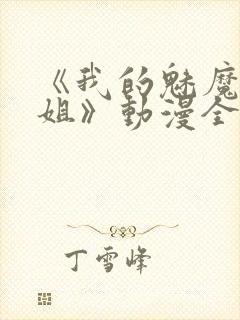 《我的魅魔
姐》動漫全
丁雪峰